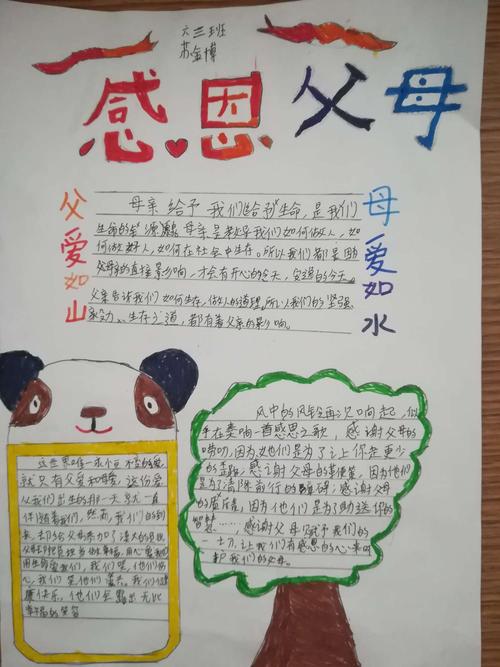 六三班
苏金博
感恩父母
父爱如山
母爱如水
母亲给予我们生命,是我们
生命的源泉,母亲是教导我们如何做人,如
何做好人,如何在社会中生存。所以我们都是因
父母亲的直接影响,才会有开心的冬天,安逸的今天。
父亲告诉我们如何生存,做人的道理,所以我们的坚强
毅力、生存之道,都有着父亲的影响。
这世界唯一永恒不变的爱
就只有父爱和母爱,这份爱
从我们出生的那一天就一直
伴随着我们,然而,我们的到
来,却给父母添加了
用生命爱我们,我们哭,他们伤
心,我们笑他们喜
康快乐,他们会露出无比
幸福的笑容
风中的风铃再次响起,似
乎在奏响一首感恩之歌,感谢父母的
唠叨,因为她们是为了让你走更少
的弯路,感谢父母的
是为了清除前行的障碍;感谢父母
的斥责,因为他们是为了助送你的
智慧……,感谢父母赋予我们的
一切,让我们有感恩的心来呵
护我们的父母。